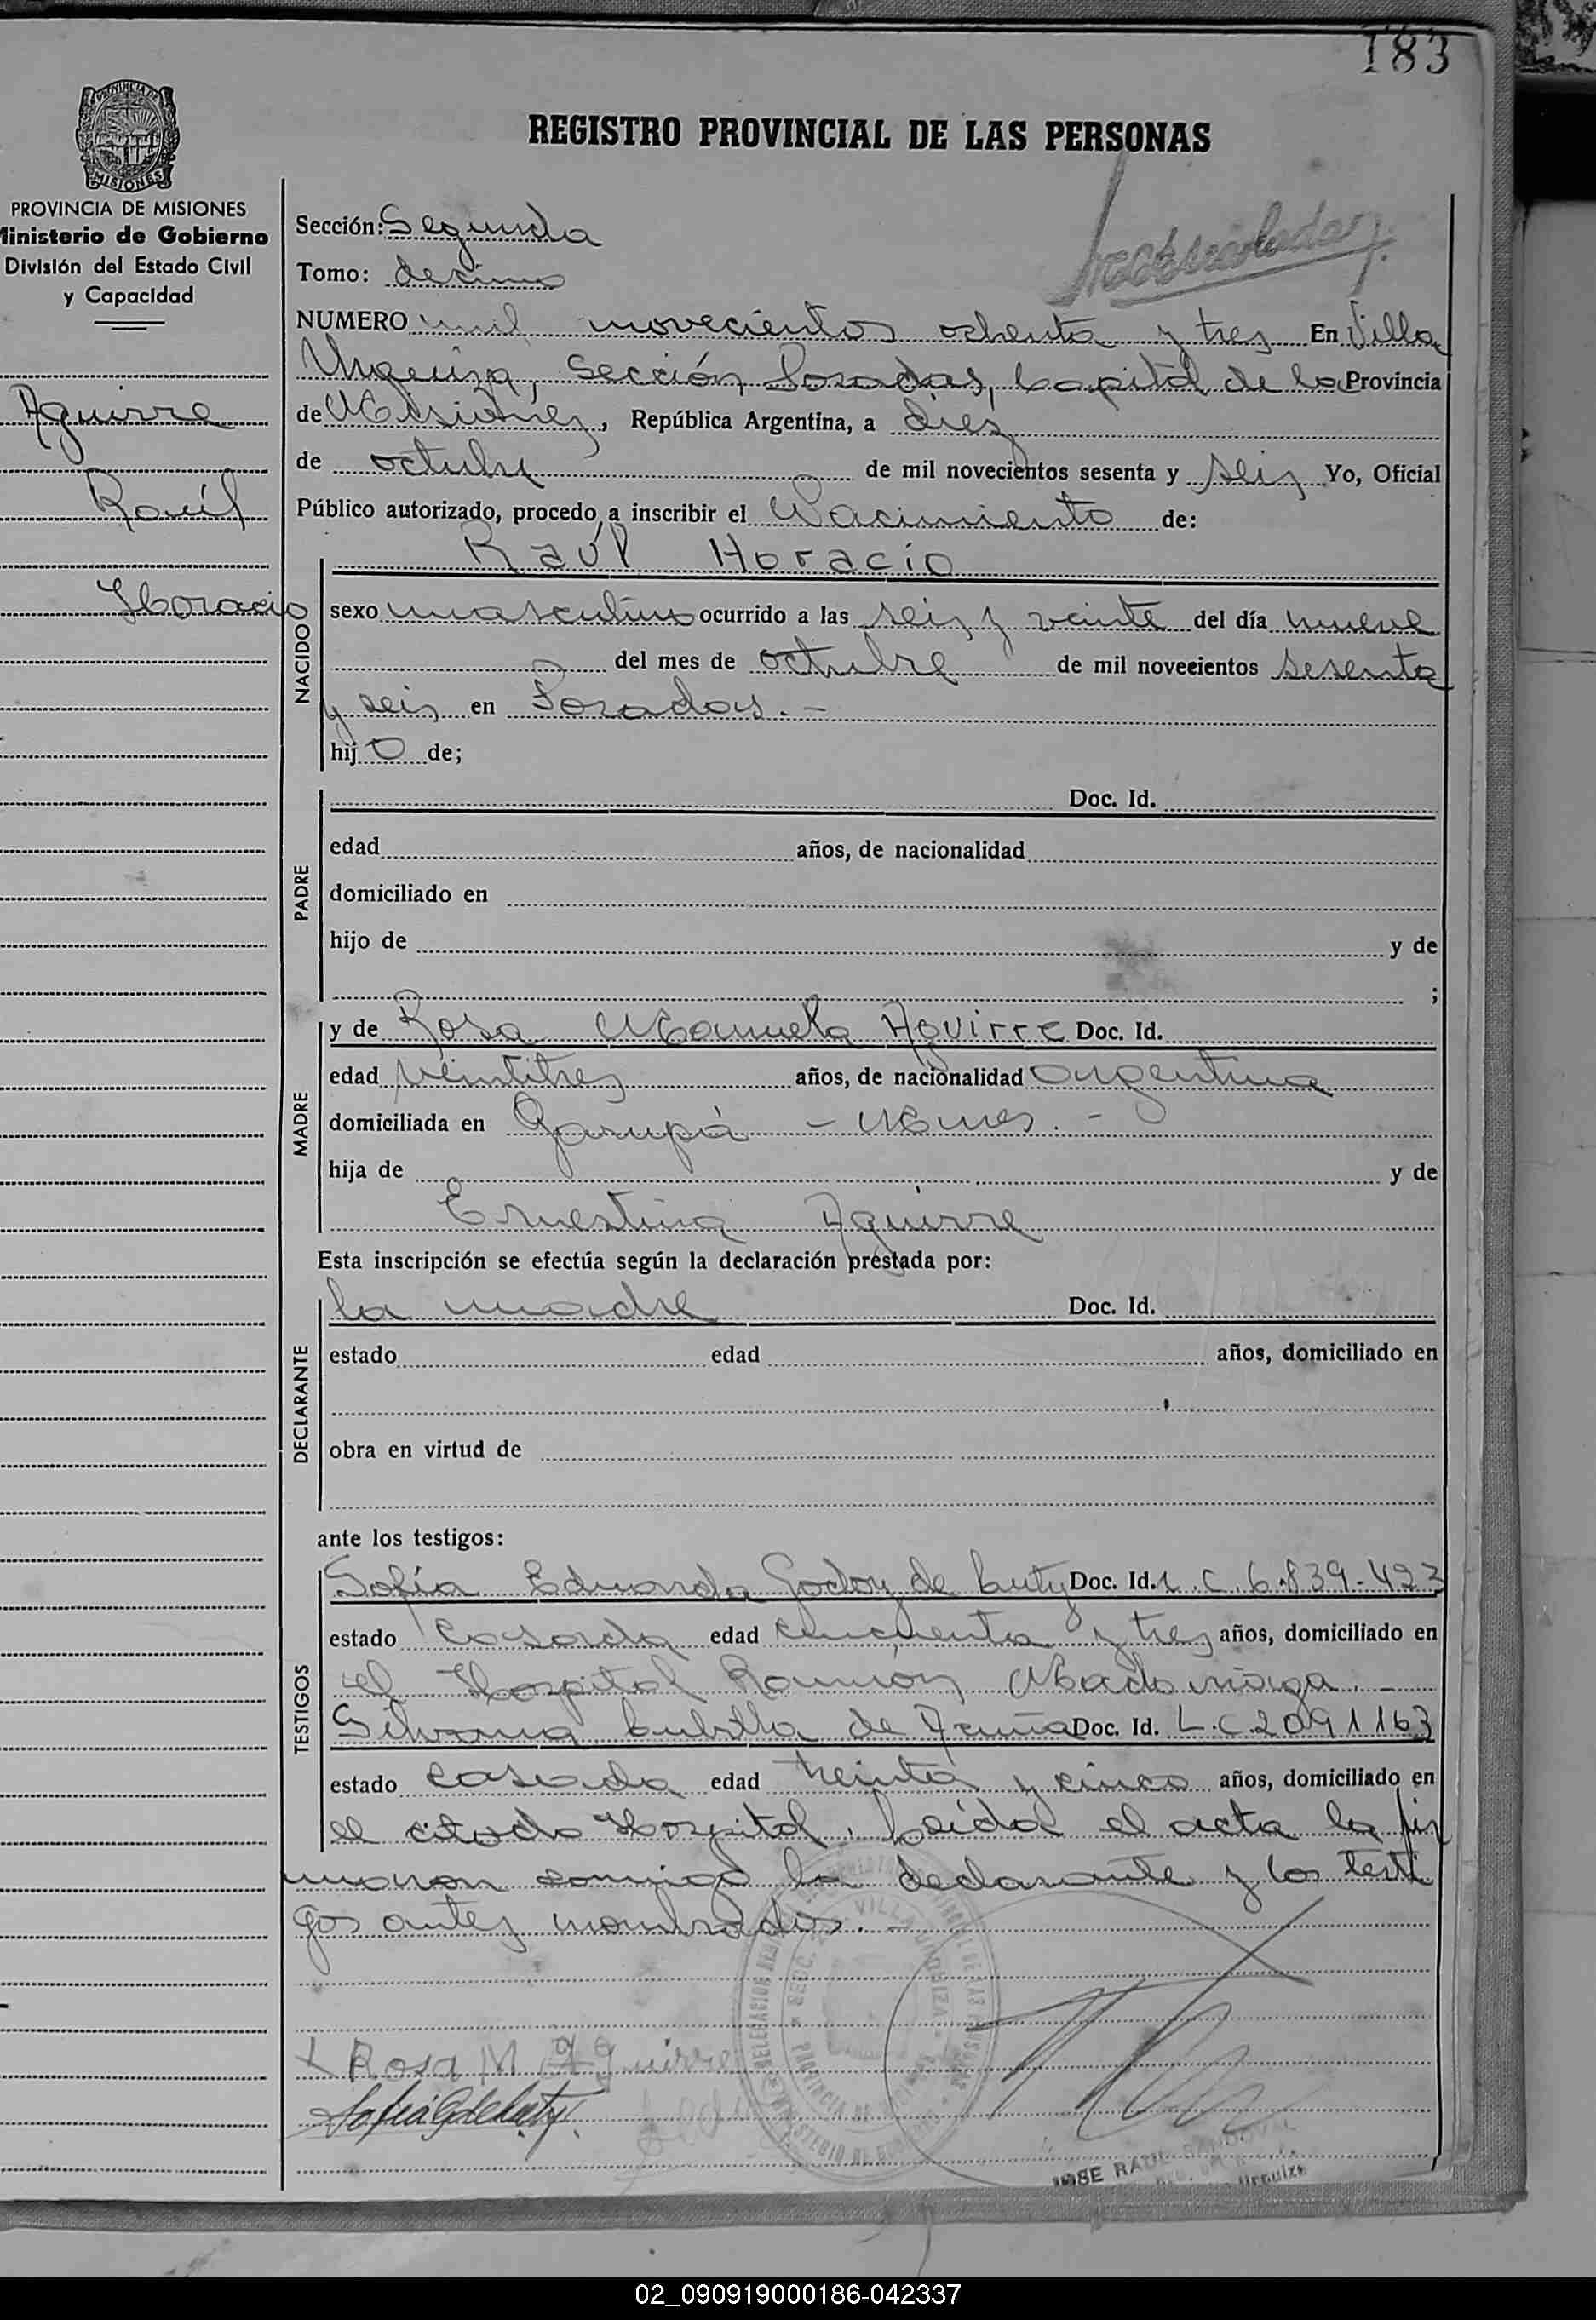 183
PROVINCIA DE MISIONES
REGISTRO PROVINCIAL DE LAS PERSONAS
PROVINCIA DE MISIONES
Ministerio de Gobierno
División del Estado Civil
y Capacidad
Aguirre
Raúl
Horacio
Sección: Segunda
Tomo: decimo
NUMERO mil novecientos ochenta y tres En Villa
Urquiza, Sección Posadas, Capital de la Provincia
de Misiones, República Argentina, a diez
de octubre de mil novecientos sesenta y seis Yo, Oficial
Público autorizado, procedo a inscribir el Nacimiento de:
Raúl Horacio
NACIDO
sexo masculino ocurrido a las seis y veinte del día nueve
del mes de octubre de mil novecientos sesenta
y seis en Posadas.-
hijo de;
PADRE
Doc. Id.
edad años, de nacionalidad
domiciliado en
hijo de y de
;
MADRE
y de Rosa Manuela Aguirre Doc. Id.
edad veintitres años, de nacionalidad argentina
domiciliada en Garupá - Mnes. -
hija de y de
Ernestina Aguirre
Esta inscripción se efectúa según la declaración prestada por:
DECLARANTE
la madre Doc. Id.
estado edad años, domiciliado en
obra en virtud de
ante los testigos:
TESTIGOS
Sofía Eduarda Godoy de Cuty Doc. Id. L.C. 6.839.423
estado casada edad cincuenta y tres años, domiciliado en
el Hospital Ramón Madariaga. -
Silvana Cubilla de Acuña Doc. Id. L.C. 2091163
estado casada edad treinta y cinco años, domiciliado en
el citado Hospital. Leída el acta la fir
maron conmigo la declarante y los testi
gos antes nombrados. -
VILLA URQUIZA
PROVINCIA DE
x Rosa M Aguirre
Sofía G de Cuty
JOSE RAUL SANDOVAL
Urquiza
02_090919000186-042337